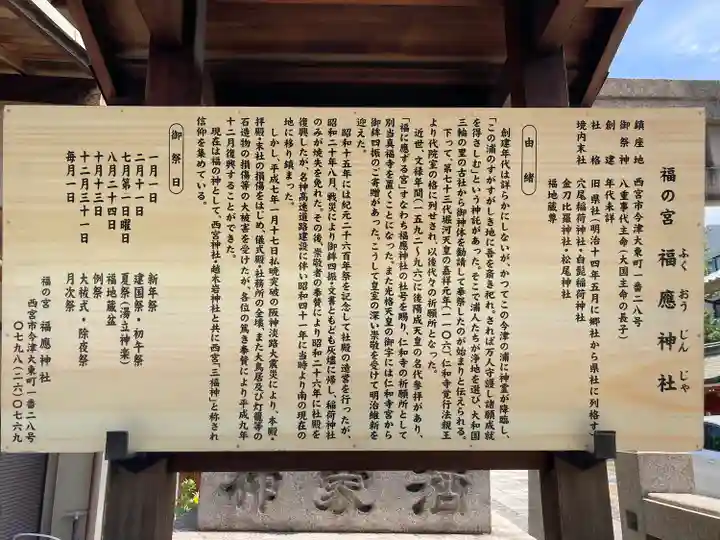 福の宮 福應神社
ふくおうじんじゃ
鎮座地 西宮市今津大東町一番二八号
御祭神 八重事代主命(大国主命の長子)
創建 年代未詳
社格 旧県社(明治十四年五月に郷社から県社に列格す)
境内末社 穴尾稲荷神社・白髭稲荷神社
金刀比羅神社・松尾神社
福地蔵尊
由緒
創建年代は詳らかにしないが、かつてこの今津の浦に神霊が降臨し、
「この浦のすがすがしき地に吾を斎き祀れ。されば万人守護し諸願成就
を得さしむ」という神託があった。そこで浦人たちが浄地を選び、大和国
三輪の里の古社から御神体を勧請して奉祭したのが始まりと伝えられる。
下って、第七十三代堀河天皇の嘉祥元年(一一〇六)、仁和寺覚行法親王
より代院室の格に列せされ、以後代々の祈願所となった。
近世、文禄年間(一五九二〜九六)に後陽成天皇の名代参拝があり、
「福に應ずる宮」すなわち福應神社の社号を賜り、仁和寺の祈願所として
別当真福寺を置くことになった。また光格天皇の御宇には仁和寺宮から
御鉾四振のご寄贈があった。こうして皇室の深い崇敬を受けて明治維新を
迎えた。
昭和十五年には紀元二千六百年祭を記念して社殿の造営を行ったが、
昭和二十年八月、戦災により御鉾四振・文書ともども灰燼に帰し、稲荷神社
のみが焼失を免れた。その後、崇敬者の奉賛により昭和二十六年に社殿を
復興したが、名神高速道路建設に伴い昭和四十一年に当時より南の現在の
地に移り鎮まった。
しかし、平成七年一月十七日払暁突破の阪神淡路大震災により、本殿・
拝殿・末社の損傷をはじめ、儀式殿・社務所の全壊、また大鳥居及び灯籠等の
石造物の損傷等の大被害を受けたが、各位の篤き奉賛により平成九年
十二月復興することができた。
現在は福の神として、西宮神社・越木岩神社と共に西宮「三福神」と称され
信仰を集めている。
御祭日
一月一日 新年祭
二月十一日 建国祭・初午祭
七月第一日曜日 夏祭(湯立神楽)
八月二十四日 福地蔵盆
十月十三日 例祭
十二月三十一日 大祓式・除夜祭
毎月一日 月次祭
福の宮 福應神社
西宮市今津大東町一番二八号
〇七九八(二六)〇七六九
酒家